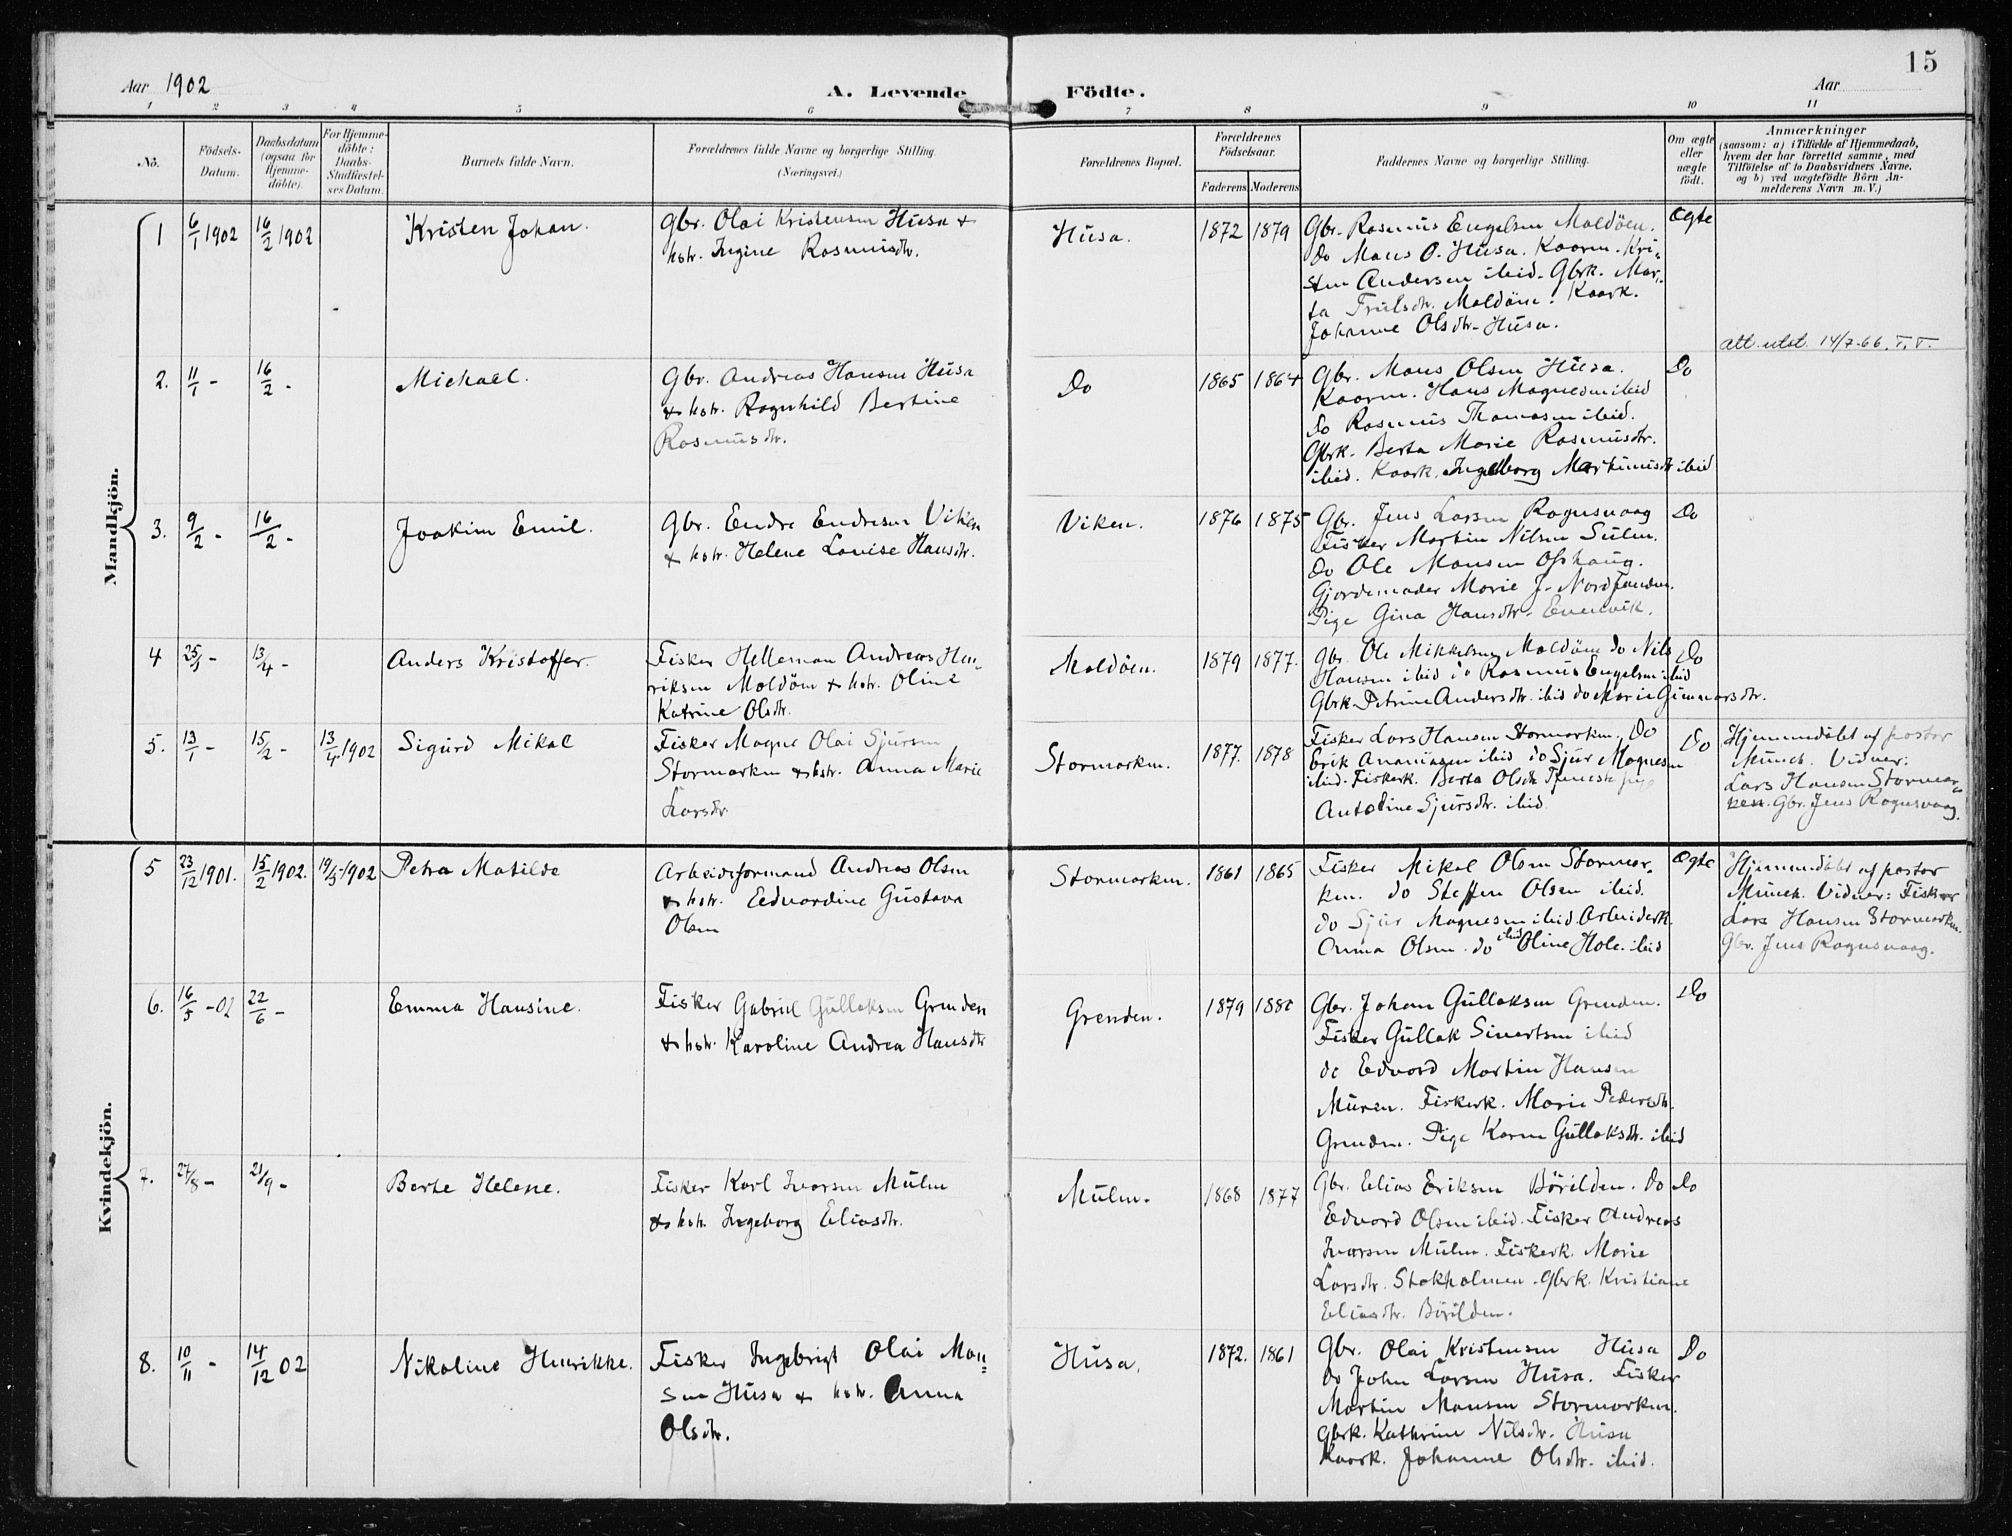 15
Aar 1902
A. Levende Födte.
Aar
1 2 3 4 5 6 7 8 9 10 11
No.
Födsels-Datum.
Daabsdatum (ogsaa for Hjemmedöbte).
For Hjemmedöbte: Daabs-Stadfæstelses Datum.
Barnets fulde Navn.
Forældrenes fulde Navne og borgerlige Stilling.
(Næringsvei.)
Forældrenes Bopæl.
Forældrenes Födselsaar.
Faderens. Moderens.
Faddernes Navne og borgerlige Stilling.
Om ægte eller uægte födt.
Anmærkninger
(saasom: a) i Tilfælde af Hjemmedaab,
hvem der har forrettet samme, med
Tilföielse af to Daabsvidners Navne.
og b) ved uægtefödte Börn An-
melderens Navn m. V.)
Mandkjön.
1 6/1 1902 16/2 1902 Kristen Johan.
Gbr. Olai Kristensen Husa &
hstr. Ingine Rasmusdtr.
Husa. 1872 1879
Gbr. Rasmus Engelsen Moldöen.
Do Mons O. Husa. Kaarm. Kri-
sten Andersen ibid. Gbrk. Mar-
ta Trulsdtr. Moldöen. Kaark.
Johanne Olsdtr. Husa.
Ægte
att. utst. 14/7-66. T.T.
2. 11/1 - 16/2 - Michael.
Gbr. Andreas Hansen Husa
& hstr. Ragnhild Bertine
Rasmusdtr.
Do 1865 1864
Gbr. Mons Olsen Husa.
Kaarm. Hans Magnesen ibid
do Rasmus Thomasen ibid.
Gbrk. Berta Marie Rasmusdtr.
ibid. Kaark. Ingeborg Martinusdtr ibid
Do
3. 9/2 - 16/2 - Joakim Emil.
Gbr. Endre Endresen Viken
& hstr. Helene Lovise Hansdtr.
Viken. 1876 1875
Gbr. Jens Larsen Rognsvaag
Fisker Martin Nilsen Sulen.
Do Ole Monsen
Gjordemoder Marie J.
Pige Gina Hansdtr. Evenvik.
Do
4 25/1 - 13/4 - Anders Kristoffer.
Fisker Helleman Andreas Hen-
riksen Moldöen & hstr. Oline
Katrine Olsdtr.
Moldöen. 1879 1877.
Gbr. Ole Mikkelsen Moldöen do Nils
Hansen ibid do Rasmus Engelsen ibid
Gbrk. Petrine Andersdtr. ibid do Marie Gunnarsdtr.
Do
5. 13/1 - 15/2 - 13/4 1902 Sigurd Mikal
Fisker Magne Olai Sjursen
Stormarken & hstr. Anna Marie
Larsdtr
Stormarken. 1877. 1878
Fisker Lars Hansen Stormarken. Do
Erik Ananiasen ibid do Sjur Magnesen
ibid. Fiskerk. Berta Olsdtr
Antoline Sjursdtr. ibid
Do
Hjemmedöbt af pastor
Münch. Vidner:
Lars Hansen Stormar-
ken. Gbr. Jens Rognsvaag.
Kvindekjön.
5 23/12 1901. 15/2 1902. 19/5 1902 Petra Matilde
Arbeidsformand Andreas Olsen
& hstr. Edvardine Gustava
Olsen
Stormarken. 1861 1865
Fisker Mikal Olsen Stormar-
ken. do Steffen Olsen ibid.
do Sjur Magnesen ibid. Arbeiderk.
Anna Olsen ibid do Oline Hole. ibid
Ægte
Hjemmedöbt af pastor
Münch. Vidner: Fisker
Lars Hansen Stormarken.
Gbr. Jens Rognsvaag.
6. 16/5 -02 22/6 - Emma Hansine.
Fisker Gabriel Gullaksen Grenden
& hstr. Karoline Andrea Hansdtr
Grenden. 1879 1880
Gbr. Johan Gullaksen Grenden.
Fisker Gullak Sivertsen ibid
do Edvard Martin Hansen
Muren. Fiskerk. Marie Pedersdtr.
Grenden. Pige Karen Gullaksdtr. ibid
Do
7. 24/8 - 21/9 - Berte Helene.
Fisker Karl Ivarsen Mulen
& hstr. Ingeborg Eliasdtr.
Mulen. 1868 1877
Gbr. Elias Eriksen Börilden. Do
Edvard Olsen ibid. Fisker Andreas
Ivarsen Mulen. Fiskerk. Marie
Larsdtr. Stokholmen. Gbrk. Kristiane
Eliasdtr. Börilden.
Do
8. 10/11 - 14/12 02 Nikoline Henrikke.
Fisker Ingebrigt Olai Mon-
sen Husa & hstr. Anna
Olsdtr.
Husa. 1872. 1861
Gbr. Olai Kristensen Husa
Do John Larsen Husa. Fisker
Martin Monsen Stormarken.
Gbrk. Kathrine Nilsdtr. Husa
Kaark. Johanne Olsdtr. ibid.
Do